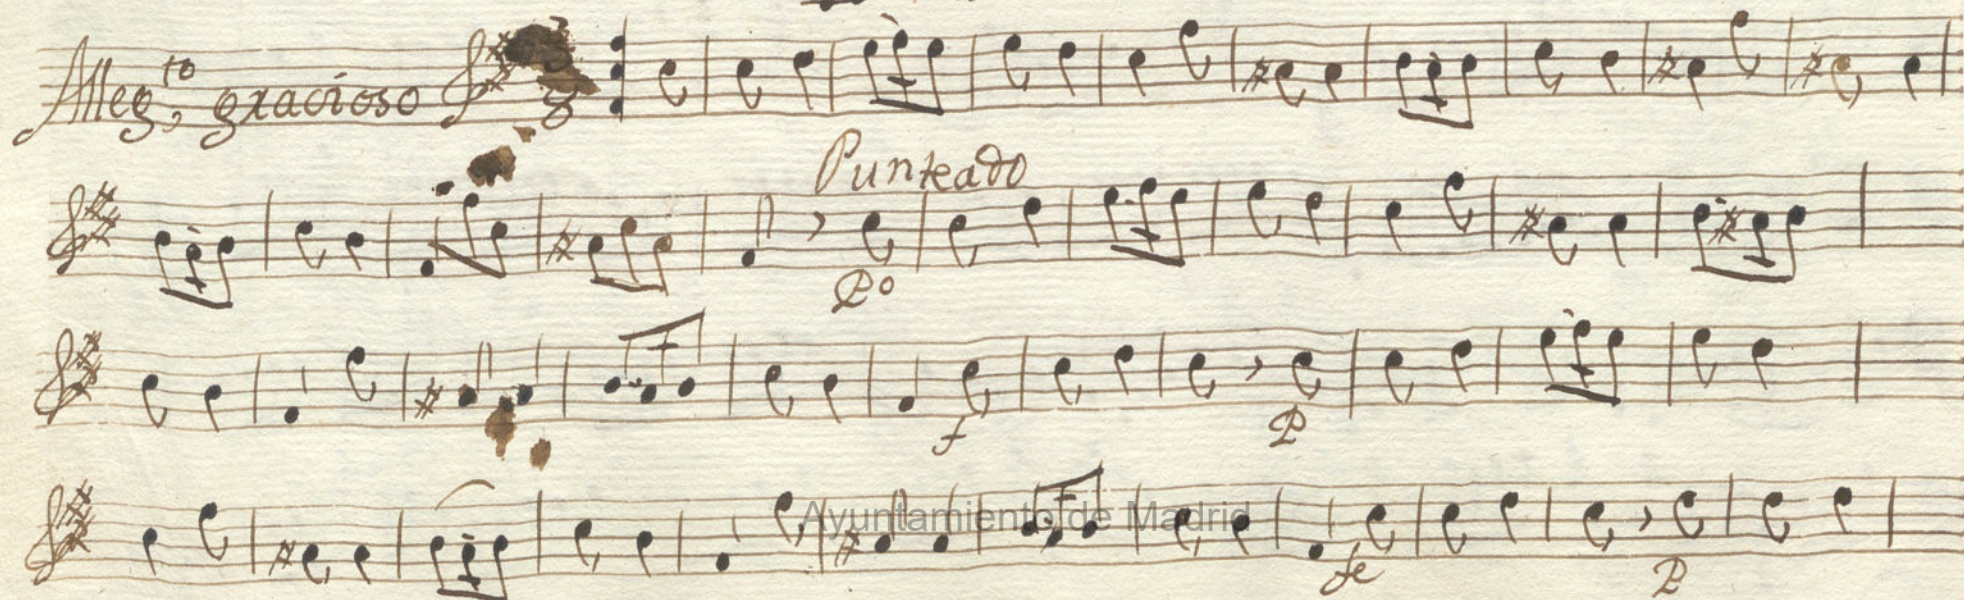 Alleg.to gracioso
8
Punteado
Po
f P
Ayuntamiento de Madrid
fe P